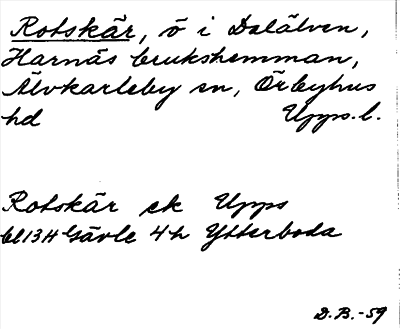 Rotskär, ö i Dalälven,
Harnäs brukshemman,
Älvkarleby sn, Örbyhus
hd Upps. l.
Rotskär ek Upps
bl 13H Gävle 4h Ytterboda
D.B.-59